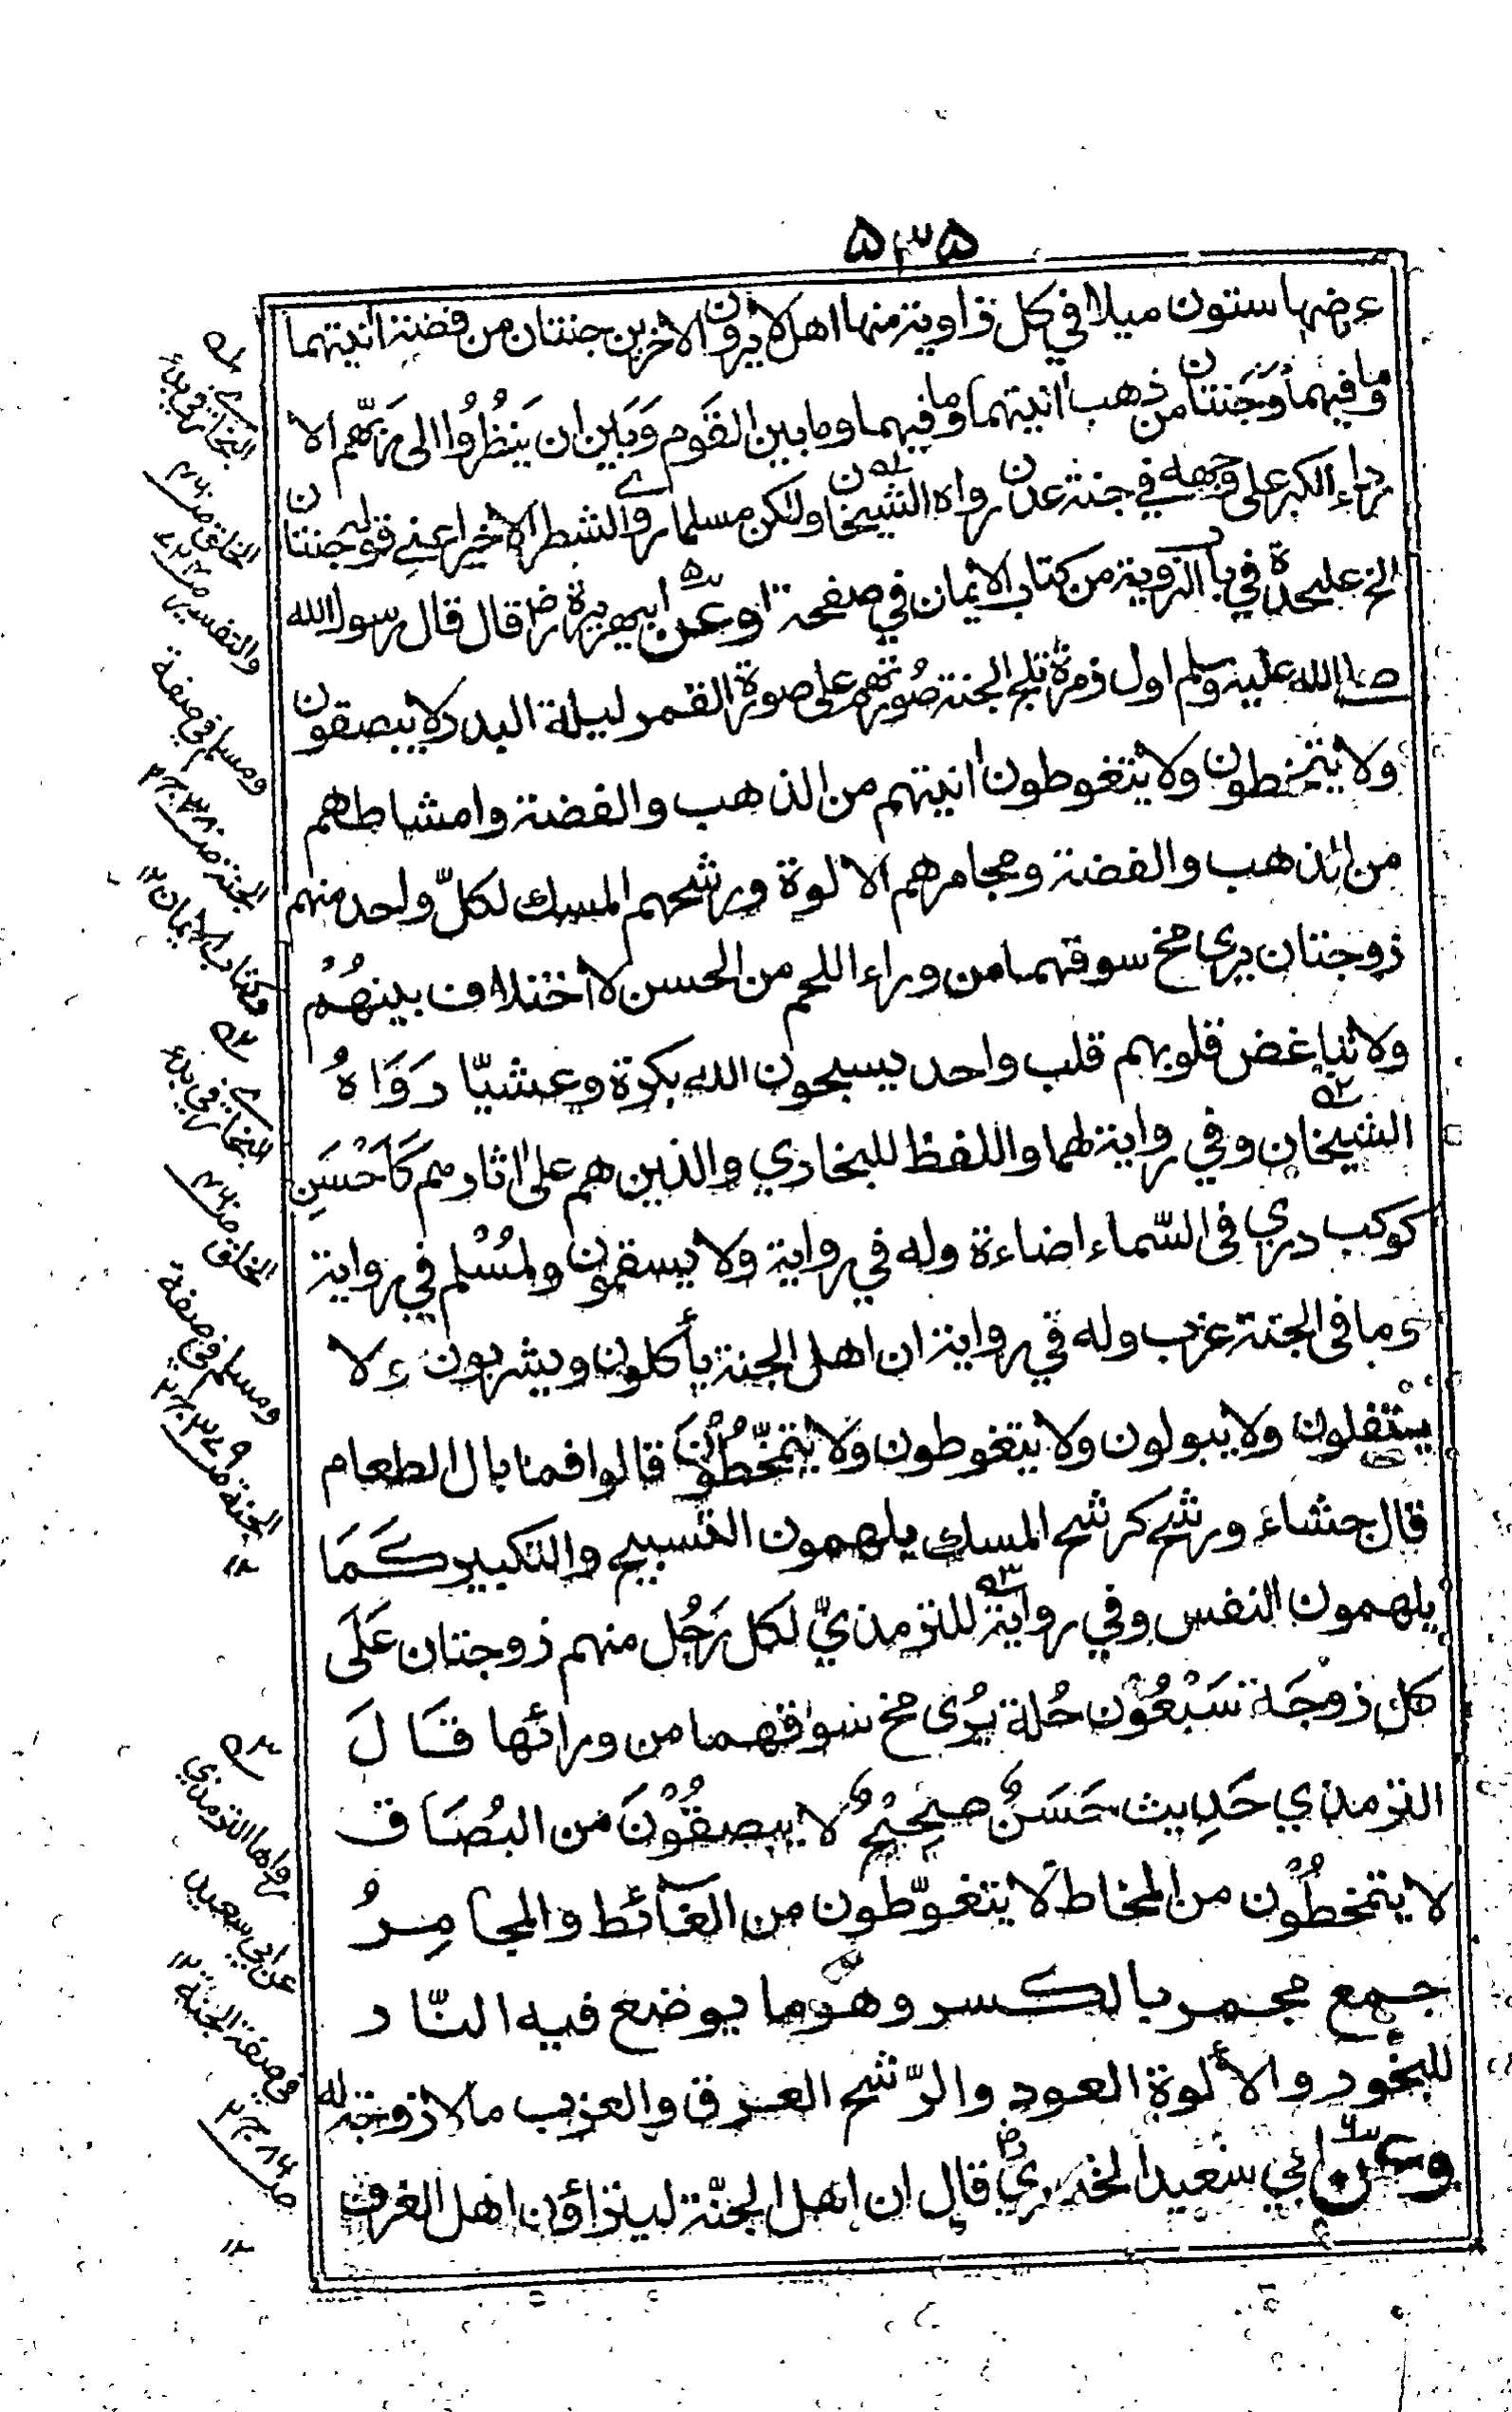 ۵۳۵
عرضها ستون ميلا في كل زاوية منها اهل لا يرون الاخرين جنتان من فضة انيتهما
وما فيهما وجنتان من ذهب انيتهما وما فيهما وما بين القوم وَبَين ان يَنظُرُوا الى رَبّهم الا
رداء الكبر على وجهه في جنة عدن رواه الشيخان ولكن مسلما روى الشطر الاخير اعني قوله جنتان
الخ عليحدة في باب الروية من كتاب الايمان في صفحة وعن ابي هريرة رض قال قال رسول الله
صلى الله عليه وسلم اول زمرة تلج الجنة صُورتهم على صورة القمر ليلة البدر لا يبصقون
ولا يتمخطون ولا يتغوطون انيتهم من الذهب والفضة وامشاطهم
من الذهب والفضة ومجامرهم الالوة ورشحهم المسك لكلّ واحد منهم
زوجتان يرى مخ سوقهما من وراء اللحم من الحسن لا اختلاف بينهُمْ
ولا تباغض قلوبهم قلب واحد يسبحون الله بكرة وعشيّا رَوَاهُ
الشيخان وفي رواية لهما واللفظ للبخاري والذين هم على اثارهم كَاَحْسَنِ
كوكب دري في السّماء اضاءة وله في رواية ولا يسقمون ولمُسْلم في رواية
وما في الجنة عزب وله في رواية ان اهل الجنة يأكلون ويشربون ولا
يتْفلون ولا يبولون ولا يتغوطون ولا يتمخّطُوْنَ قالوا فما بال الطعام
قال جشاء ورشح كرشح المسك يلهمون التسبيح والتكبير كَمَا
يلهمون النفس وفي رواية للترمذيّ لكل رَجُل منهم زوجتان عَلَى
كل زوجَة سَبْعُوْن حُلة يُرى مخ سوقهما من ورائها قَالَ
الترمذي حَدِيث حَسَنٌ صحِيْحٌ لا يبصقُوْنَ من البُصَاق
لا يتمخطُوْن من المخاط لا يتغوّطون من الغَائط والمجامِرُ
جمع مجمر بالكسر وهو ما يوضع فيه النّار
للبخُور والألوة العود والرّشح العرق والعزب ما لا زوجة له
وعن ابي سَعيد الخدريّ رض قال ان اهل الجنّة ليتراؤن اهل الغرف
البخاري في بدء
الخلق صـ۴۶۰
والتفسير
ومسلم في صفة
الجنة صـ۳۸۰ ج۲
وكتاب الايمان ۱۲
البخاري في بدء
الخلق صـ۴۶۰
ومسلم في صفة
الجنة صـ۳۷۹ ج۲
۱۲
رواها الترمذي
عن ابي سعيد
في صفة الجنة
۱۲